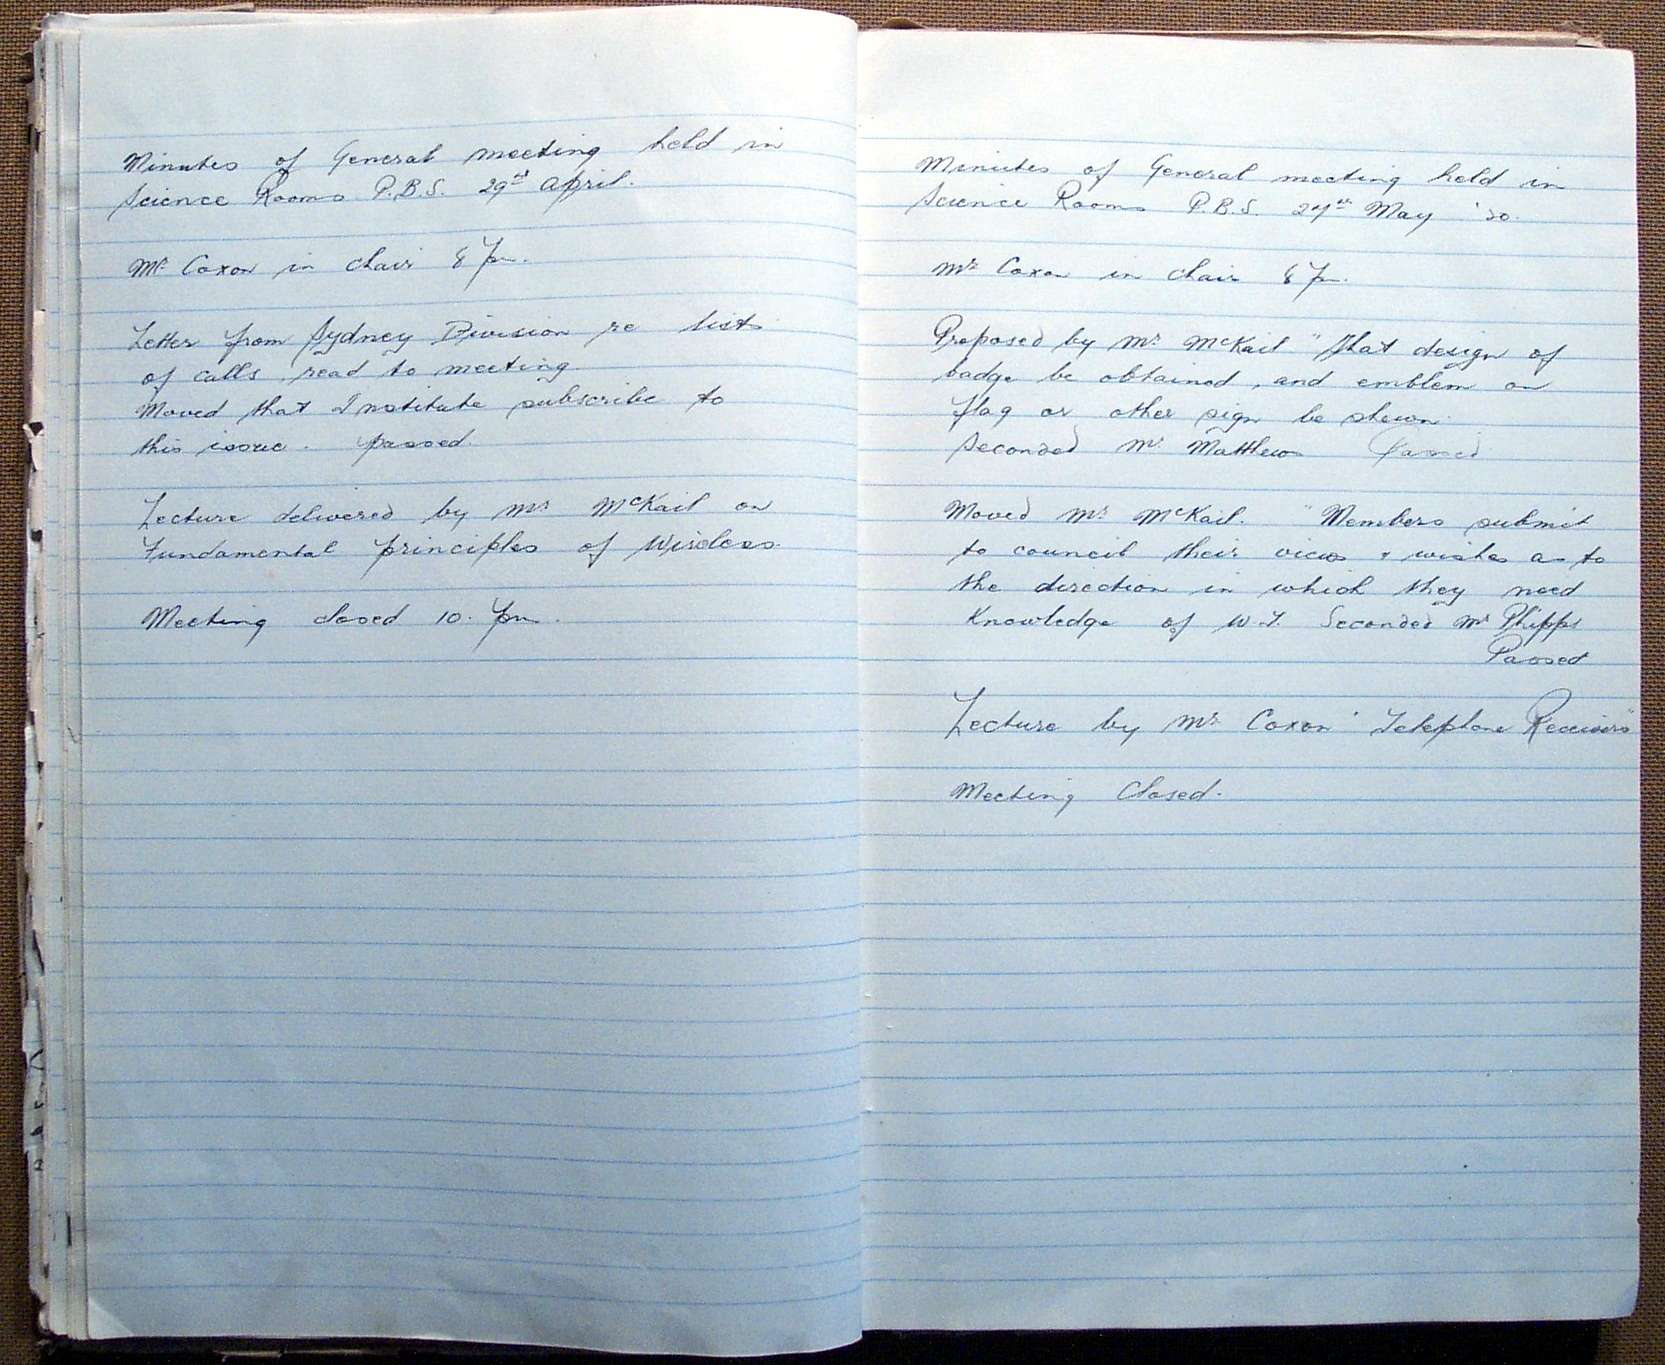 Minutes of General meeting held in
Science Rooms P.B.S. 29th April.
Mr Coxon in chair 8 pm.
Letter from Sydney Division re lists
of calls, read to meeting
Moved that Institute subscribe to
this issue. passed.
Lecture delivered by Mr McKail on
Fundamental principles of Wireless.
Meeting closed 10. pm.
Minutes of General meeting held in
Science Rooms P.B.S. May '20.
Mr Coxon in chair 8 pm.
Proposed by Mr McKail "That design of
badge be obtained, and emblem on
flag or other sign be shewn.
Seconded Mr Matthews Passed
Moved Mr McKail. "Members submit
to council their views & wishes as to
the direction in which they need
Knowledge of W.T. Seconded Mr Phipps
Passed
Lecture by Mr Coxon "Telephone Receivers"
Meeting Closed.